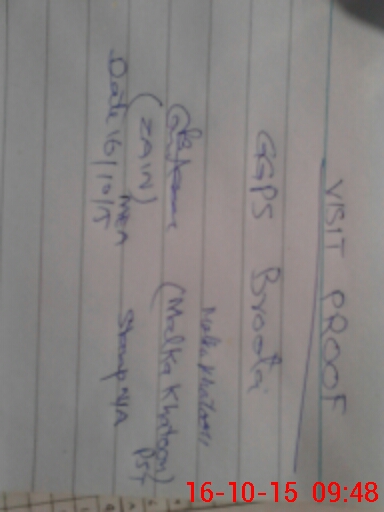 VISIT PROOF
GGPS Broohi
Malka Khatoon
(Malka Khatoon)
PST
(ZAIN)
MEA
Stamp N/A
Date 16/10/15
16-10-15 09:48